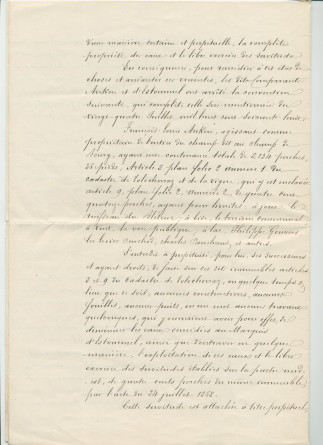 d'une manière certaine et perpétuelle, la complète
propriété du eaux et le libre exercice des servitudes.
En conséquence, pour remédier à cet état de
choses et anéantir ces craintes, les dits Comparants
et d'Estournel ont arrêté la convention
suivante, qui complète celle sus-mentionnée du
vingt quatre Juillet mil huit cent soixante huit.
François Louis agissant comme
propriétaire de du champ dit au champ de
ayant une contenance totale de 2134 perches,
35 pieds, Article 3 plan folio 2 numéro 1 du
cadastre de et de la vigne, qui y est enclavée
article 9, plan folio 2 numéro 2, de quatre cent
quatre perches, ayant pour limites: à joran le
ruisseau du à bise, le terrain communal
à vent la voie publique, à bas, Philippe
les hoirs Charles et autres.
S'interdit à perpétuité, pour lui, ses successeurs
et ayant droits, de faire sur ces dits immeubles articles
3 et 9 du Cadastre de en quelque temps et
lieu que ce soit, aucunes constructions, aucunes
fouilles, aucun puits, ou une ou aucuns travaux
quelconques, qui y pourraient avoir pour effet, de
diminuer les eaux concédées au Marquis
d'Estournel, ainsi que d'entraver en quelque
manière, l'exploitation de ces eaux et le libre
exercice des servitudes établies sur la partie sud
est, de quatre cents perches du même immeuble,
par l'acte du 24 juillet 1868.
Cette servitude est attachée à titre perpétuel,